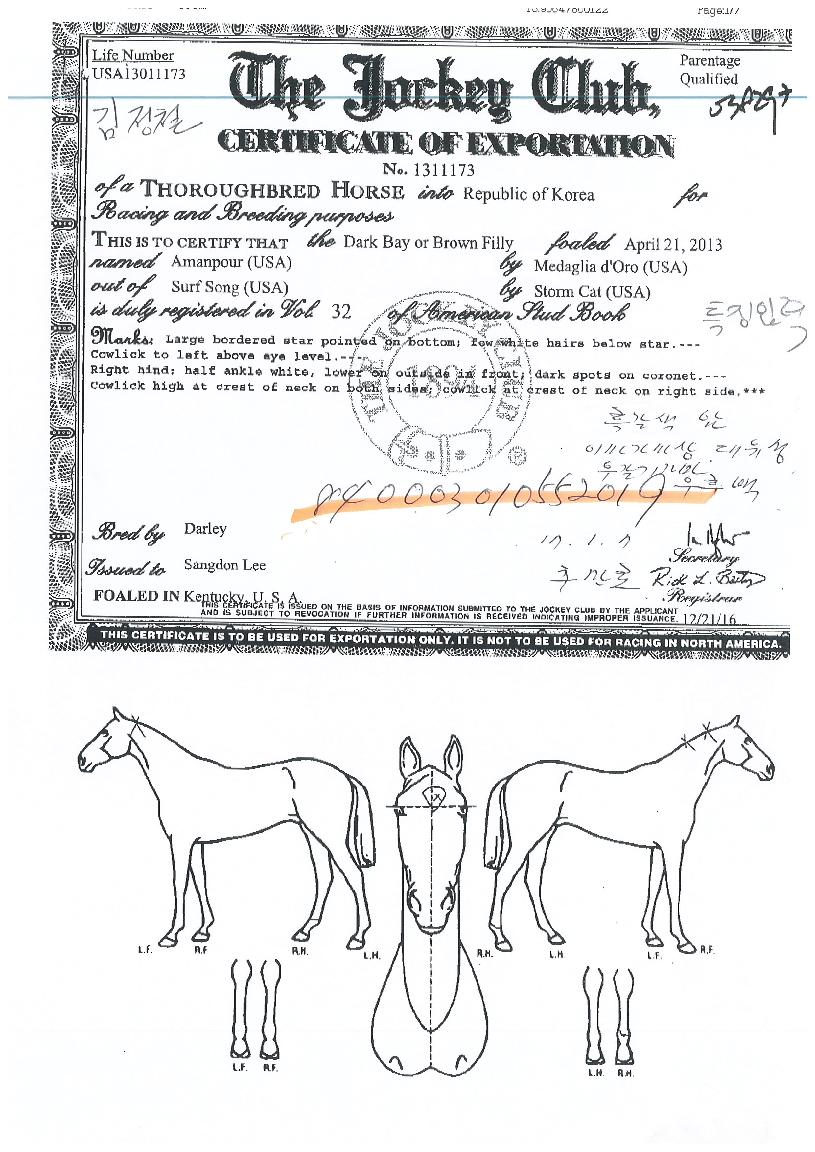 Page:1/7
Life Number
USA13011173
The Jockey Club,
Parentage
Qualified
김정철
CERTIFICATE OF EXPORTATION
No. 1311173
of a THOROUGHBRED HORSE into Republic of Korea for
Racing and Breeding purposes
THIS IS TO CERTIFY THAT the Dark Bay or Brown Filly foaled April 21, 2013
named Amanpour (USA) by Medaglia d'Oro (USA)
out of Surf Song (USA) by Storm Cat (USA)
is duly registered in Vol. 32 of American Stud Book
특징일치
Marks: Large bordered star pointed on bottom; few white hairs below star.---
Cowlick to left above eye level.---
Right hind: half ankle white, lower on outside in front; dark spots on coronet.---
Cowlick high at crest of neck on both sides; cowlick at crest of neck on right side.***
THE JOCKEY CLUB
1894
®
840003010552019
Bred by Darley
17. 1. 7
Secretary
Issued to Sangdon Lee
Registrar
FOALED IN Kentucky, U. S. A.
THIS CERTIFICATE IS ISSUED ON THE BASIS OF INFORMATION SUBMITTED TO THE JOCKEY CLUB BY THE APPLICANT
AND IS SUBJECT TO REVOCATION IF FURTHER INFORMATION IS RECEIVED INDICATING IMPROPER ISSUANCE. 12/21/16
THIS CERTIFICATE IS TO BE USED FOR EXPORTATION ONLY. IT IS NOT TO BE USED FOR RACING IN NORTH AMERICA.
L.F. R.F. R.H. L.H. R.H. L.H. L.F. R.F.
L.F. R.F. L.H. R.H.